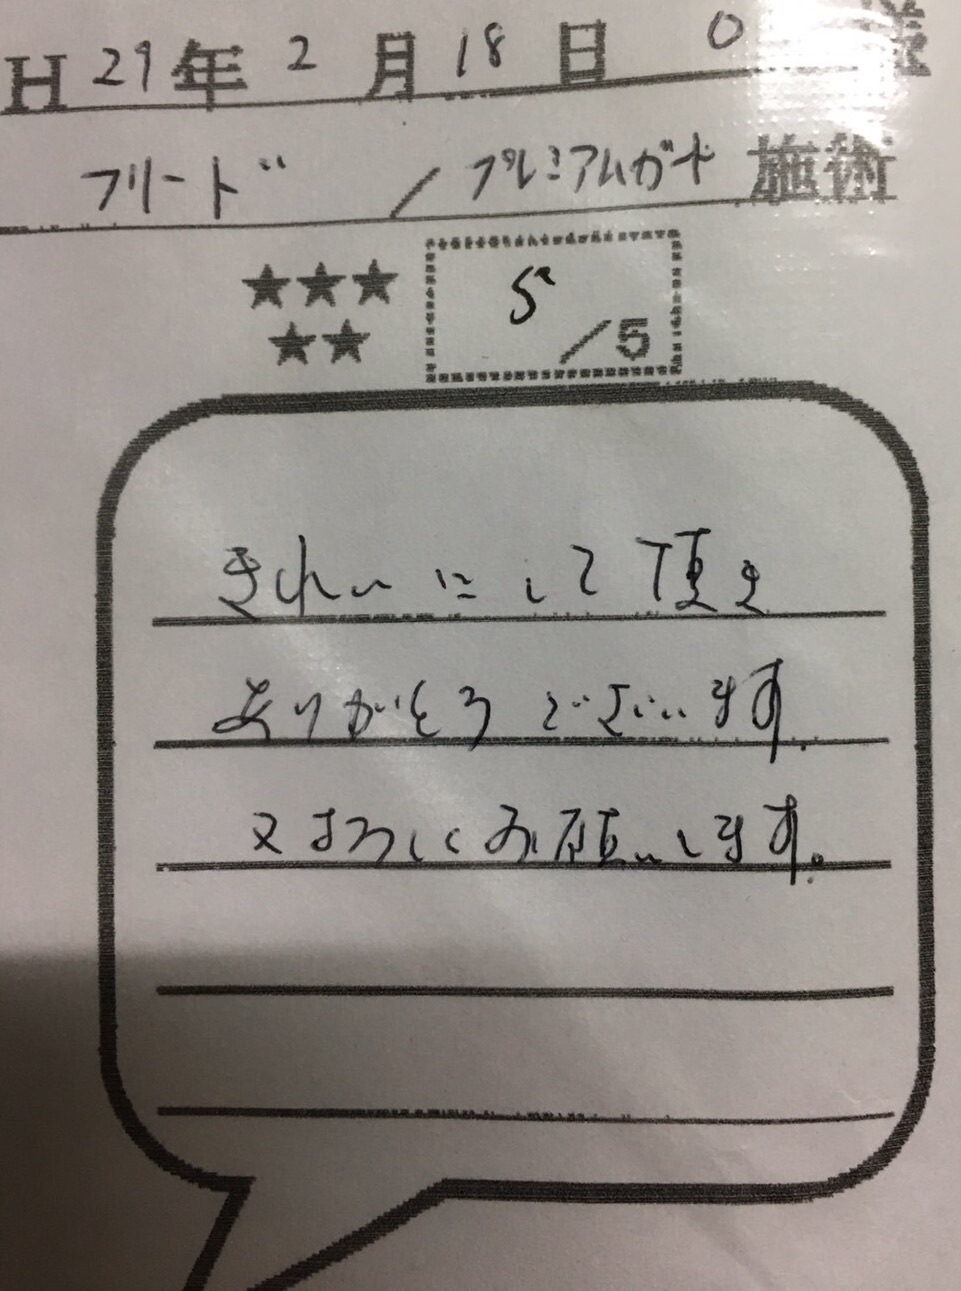 H29年2月18日 O 様
フリード / プレミアムガード 施術
★★★
★★
5/5
きれいにして頂き
ありがとうございます。
又よろしくお願いします。